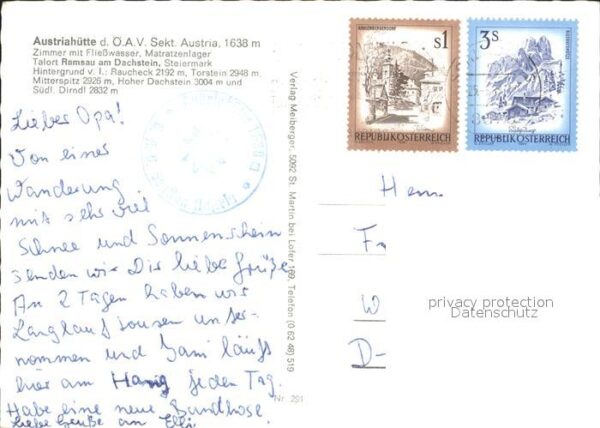 Austriahütte d. Ö.A.V. Sekt. Austria, 1638 m
Zimmer mit Fließwasser, Matratzenlager
Talort Ramsau am Dachstein, Steiermark
Hintergrund v. l.: Raucheck 2192 m, Torstein 2948 m,
Mitterspitz 2926 m, Hoher Dachstein 3004 m und
Südl. Dirndl 2832 m
Lieber Opa!
Von einer
Wanderung
mit sehr viel
Schnee und Sonnenschein
senden wir Dir liebe Grüße
An 2 Tagen haben wir
Langlauftouren unter-
nommen und läuft
hier am Hang jeden Tag.
Habe eine neue Bundhose.
Liebe Grüße an Elli
Verlag Meiberger, 5092 St. Martin bei Lofer 169, Telefon (0 62 48) 519
Nr. 291
S1
REPUBLIK ÖSTERREICH
3S
REPUBLIK ÖSTERREICH
Herrn
Fa
W
D-
privacy protection
Datenschutz